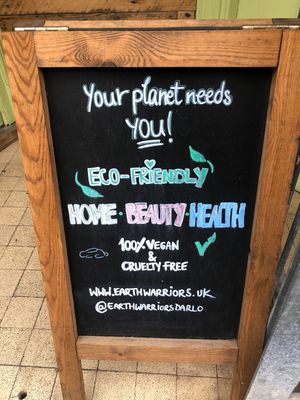 Your planet needs
YOU!
ECO-FRIENDLY
HOME · BEAUTY · HEALTH
100% VEGAN
&
CRUELTY FREE
WWW.EARTHWARRIORS.UK
@EARTHWARRIORSDARLO